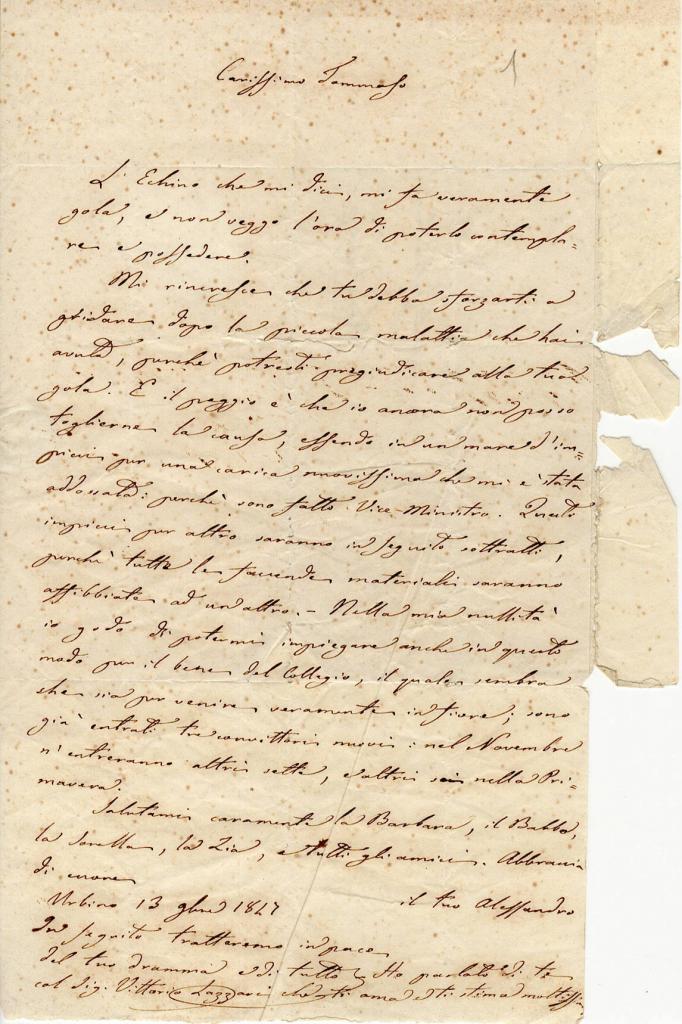 1
Carissimo Tommaso
L'Echino che mi dici, mi fa veramente
gola, e non veggo l'ora di poterlo contempla=
re e possedere.
Mi rincresce che tu debba sforzarti a
gridare dopo la piccola malattia che hai
avuta, perchè potresti pregiudicare alla tua
gola. E il peggio è che io ancora non posso
toglierne la causa, essendo in un mare d'im=
picci per una carica nuovissima che mi è stata
addossata: perchè sono fatto Vice-Ministro. Questi
impicci per altro saranno in seguito sottratti,
perchè tutte le faccende materiali saranno
affibbiate ad un altro. - Nella mia nullità
io godo di potermi impiegare anche in questo
modo per il bene del Collegio, il quale sembra
che sia per venire veramente in fiore; sono
già entrati tre convittori nuovi: nel Novembre
n'entreranno altri sette, e altri sei nella Pri=
mavera.
Salutami caramente la Barbara, il Babbo,
la Sorella, la Zia, e tutti gli amici. Abbraccia
di cuore
Urbino 13 9bre 1847 il tuo Alessandro
In seguito tratteremo in pace
del tuo dramma e di tutto. Ho parlato di te
col Sig. Vittorio Lazzari che ti ama e ti stima